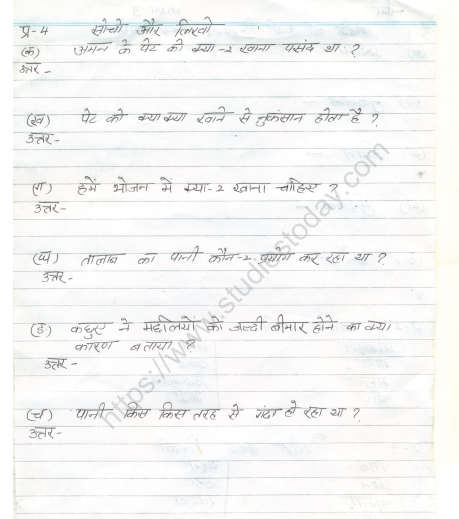 प्र-4 सोचो और लिखो
(क) अमन के पेट को क्या-2 खाना पसंद था ?
उत्तर -
(ख) पेट को क्या क्या खाने से नुकसान होता है ?
उत्तर-
(ग) हमें भोजन में क्या-2 खाना चाहिए ?
उत्तर-
(घ) तालाब का पानी कौन-2 प्रयोग कर रहा था ?
उत्तर-
(ङ) कछुए ने मछलियों को जल्दी बीमार होने का क्या
कारण बताया ?
उत्तर -
(च) पानी किस किस तरह से गंदा हो रहा था ?
उत्तर-
https://www.studiestoday.com